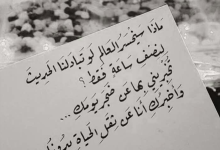 ماذا سيخسر العالم لو تبادلنا الحديث
لنصف ساعة فقط؟
تخبريني بها عن ضجر يومك...
وأخبرك أنا عن ثقل الحياة بدونك